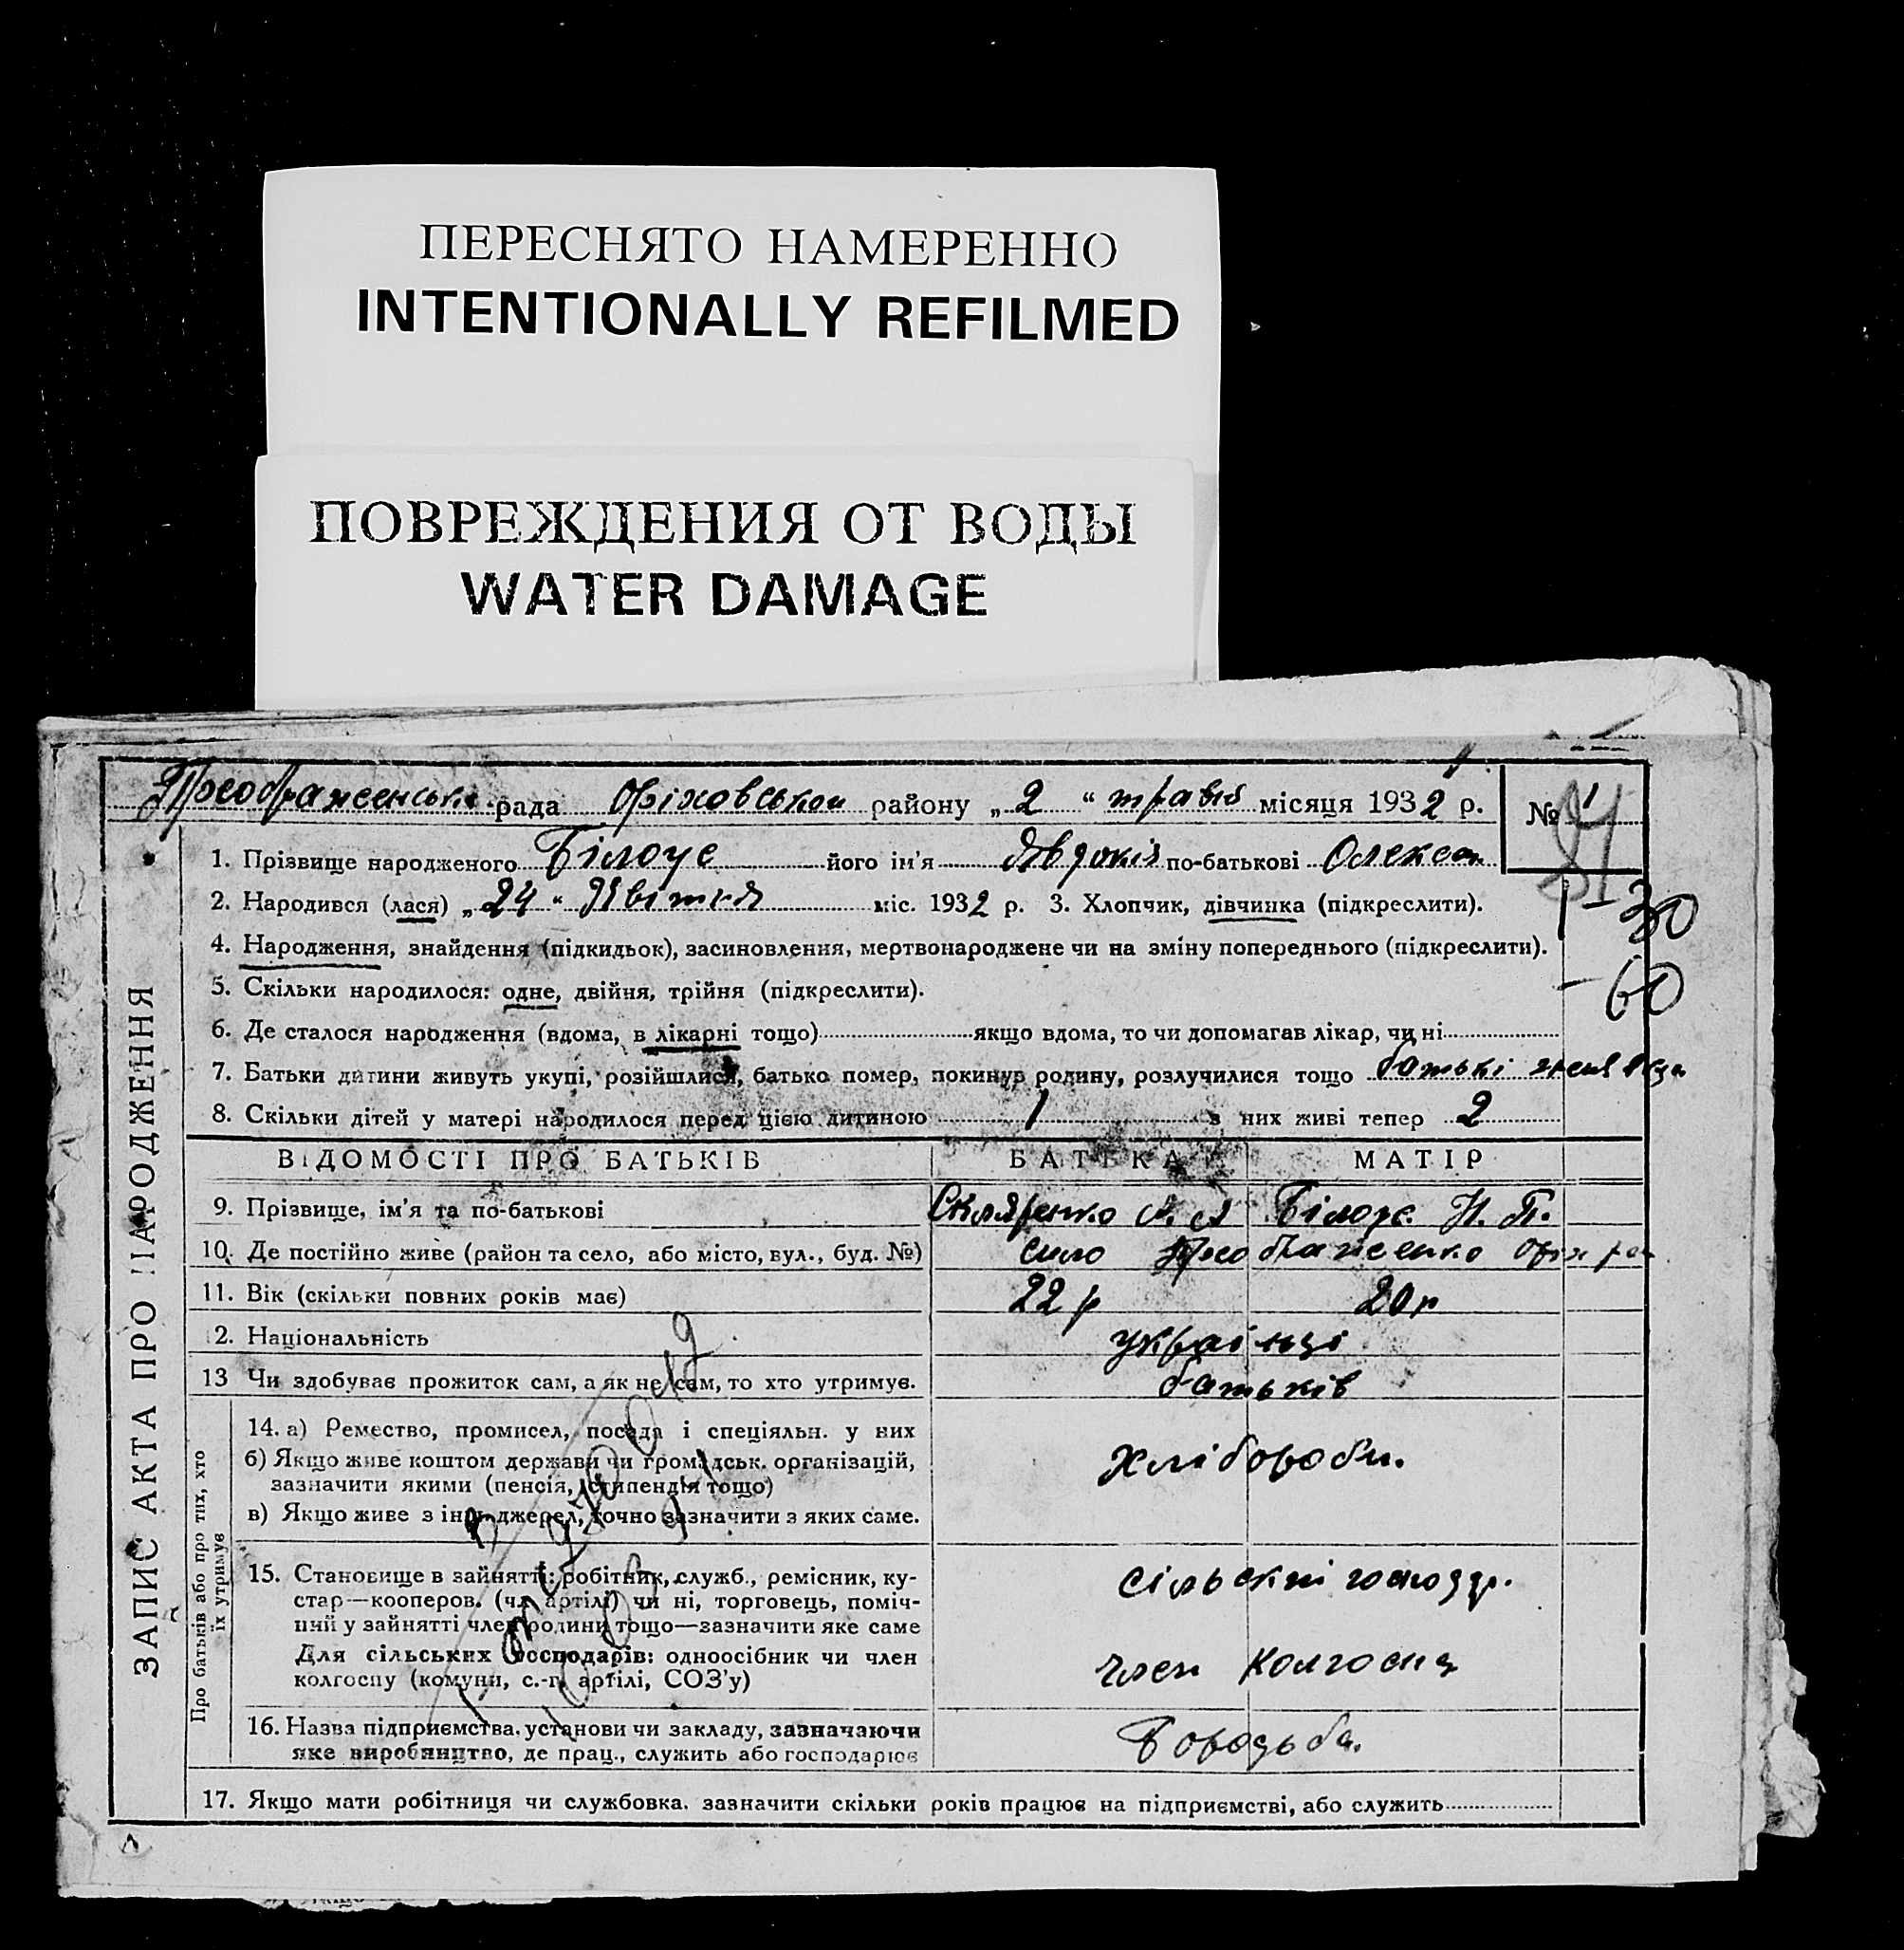 ПЕРЕСНЯТО НАМЕРЕННО
INTENTIONALLY REFILMED
ПОВРЕЖДЕНИЯ ОТ ВОДЫ
WATER DAMAGE
Преображенська рада Оріховськои району „2“ травня місяця 1932 р. №
1. Прізвище народженого Білоус його ім'я Явдокія по-батькові Олекса
2. Народився (лася) „24“ Квітня міс. 1932 р. 3. Хлопчик, дівчинка (підкреслити).
30
4. Народження, знайдення (підкидьок), засиновлення, мертвонароджене чи на зміну попереднього (підкреслити).
5. Скільки народилося: одне, двійня, трійня (підкреслити).
60
6. Де сталося народження (вдома, в лікарні тощо) якщо вдома, то чи допомагав лікар, чи ні
7. Батьки дитини живуть укупі, розійшлися, батько помер, покинув родину, розлучилися тощо батькі
8. Скільки дітей у матері народилося перед цією дитиною 1 з них живі тепер 2
ВІДОМОСТІ ПРО БАТЬКІВ БАТЬКА МАТІР
9. Прізвище, ім'я та по-батькові Скляренко А. А Білоус Н. П.
10. Де постійно живе (район та село, або місто, вул., буд. №) село Преображенко Оріх
11. Вік (скільки повних років має) 22 р 20 р
2. Національність українці
13 Чи здобуває прожиток сам, а як не сам, то хто утримує. батьків
14. а) Ремество, промисел, посада і спеціяльн. у них
б) Якщо живе коштом держави чи громадськ. організацій, Хлібороби.
зазначити якими (пенсія, стипендія тощо)
в) Якщо живе з інш. джерел, точно зазначити з яких саме.
15. Становище в зайнятті: робітник, служб., ремісник, ку- сільскиі господар.
стар—кооперов. (чл. артілі) чи ні, торговець, поміч-
ний у зайнятті член родини тощо—зазначити яке саме
Для сільських господарів: одноосібник чи член член колгоспа
колгоспу (комуни, с.-г. артілі, СОЗ'у)
16. Назва підприємства, установи чи закладу, зазначаючи Бородьба.
яке виробництво, де прац., служить або господарює
17. Якщо мати робітниця чи службовка, зазначити скільки років працює на підприємстві, або служить
ЗАПИС АКТА ПРО НАРОДЖЕННЯ
Про батьків або про тих, хто
їх утримує